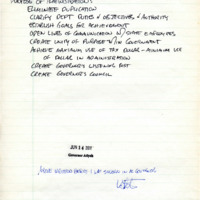 PURPOSE OF REORGANIZATIONS
ELIMINATE DUPLICATION
CLARIFY DEPT RULES & OBJECTIVES & AUTHORITY
ESTABLISH GOALS FOR ACHIEVEMENT
OPEN LINES OF COMMUNICATION W/ STATE EMPLOYEES
CREATE UNITY OF PURPOSE W/IN GOVERNMENT
ACHIEVE MAXIMUM USE OF TAX DOLLAR - MINIMUM USE
OF DOLLAR IN ADMINISTRATION
CREATE GOVERNOR'S LISTENING POST
CREATE GOVERNOR'S COUNCIL
JUN 16
HAVE NEEDED I WAS SWORN IN AS GOVERNOR